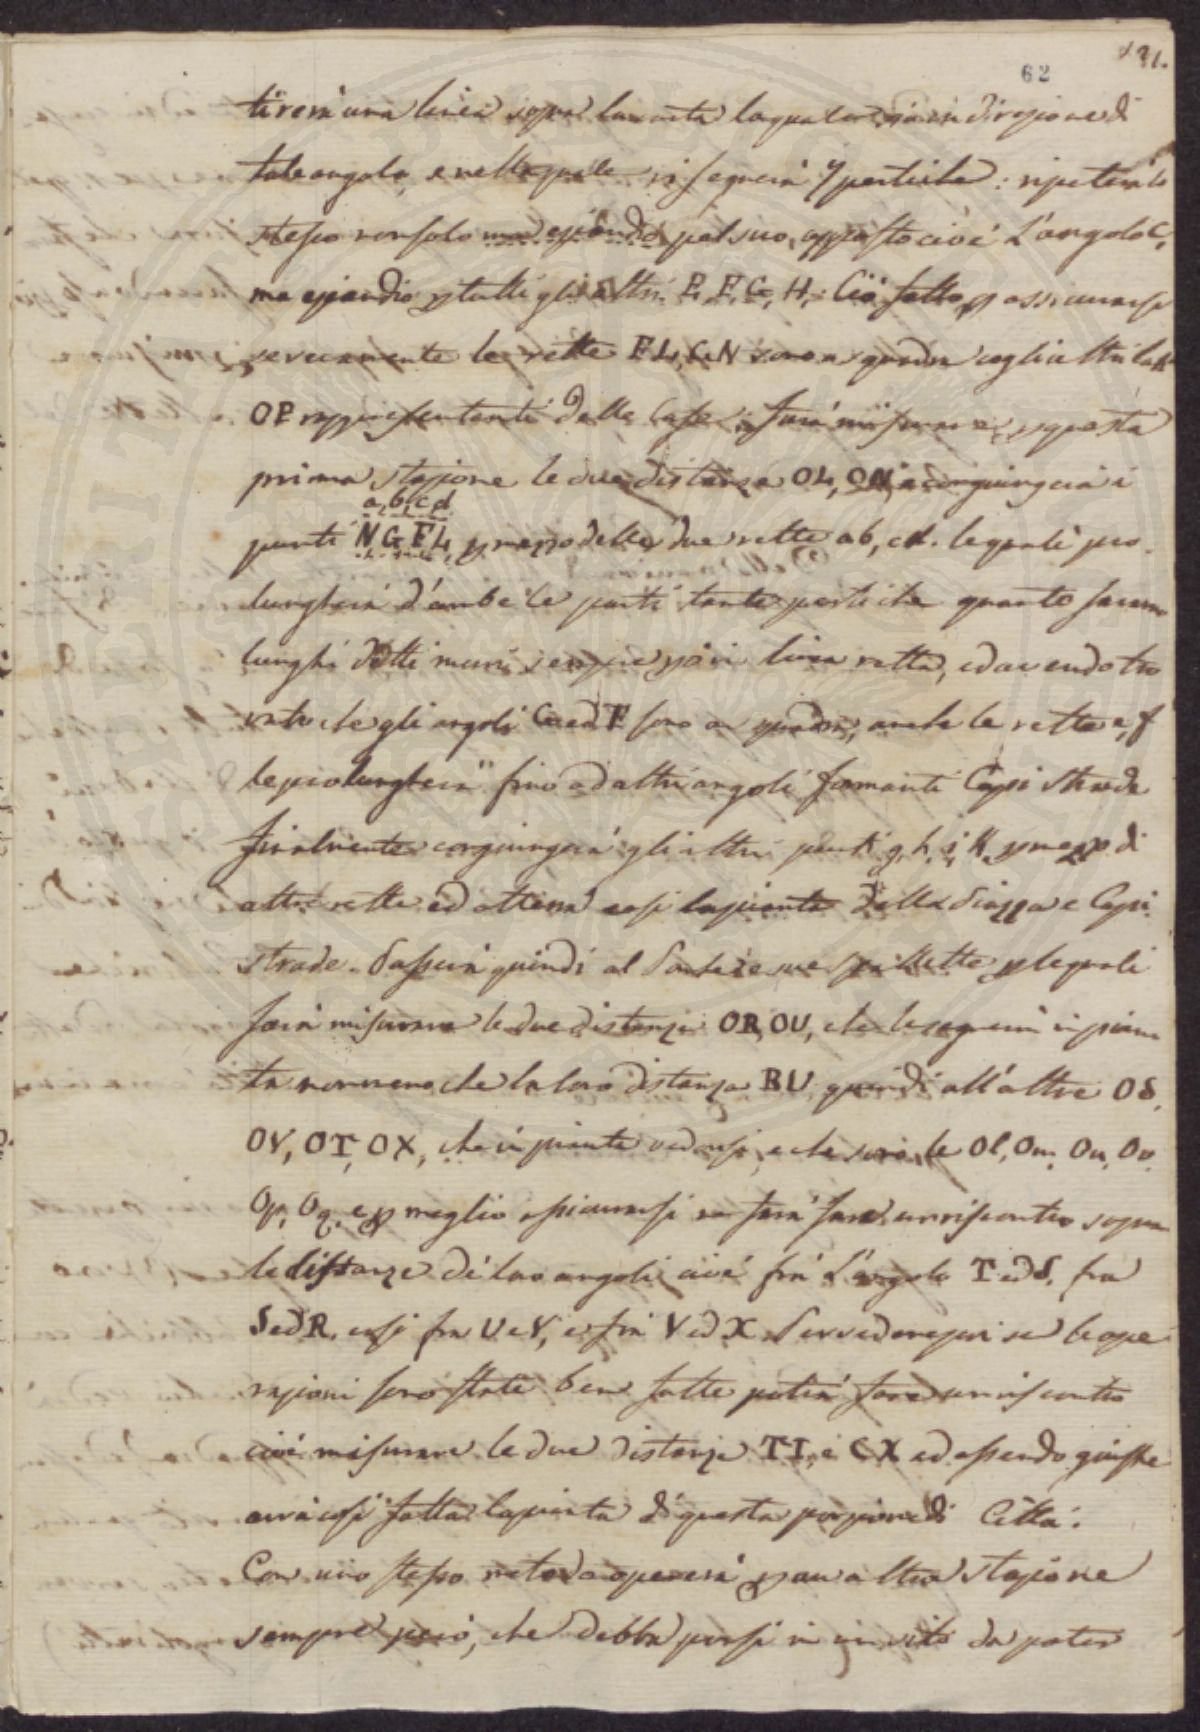 62
131.
tirerà una linea sopra la carta la quale sia in direzione di
tale angolo, e nella quale si segnerà 7 pertiche: ripeterà lo
stesso non solo pel suo opposto cioè L'angolo C,
ma eziandio p tutti gli altri E, F, G, H. Ciò fatto, p assicurarsi
se veramente le rette FL, GN sono a squadra cogli altri lati
OP rappresentanti delle Case, farà misurare, p questa
prima stazione le due distanze OL, ON, e congiungerà i
a, b, c, d.
punti NGFL, p mezzo delle due rette ab, cd. le quali pro
lungherà d'ambe le parti tante pertiche quanto saran
lunghi detti muri sempre però in linea retta, ed avendo tro
vato che gli angoli G ed F sono a squadra, anche le rette e, f
le prolungherà fino ad altri angoli formanti Capi Strade
finalmente congiungerà gli altri punti g, h, i, K, p mezzo di
altre rette ed otterrà così la pianta della Piazza e Capi
strade. Passerà quindi al p le quali
farà misurare le due distanze OR, OU, che le segnerà in pian
ta nonmeno che la loro distanza RU, quindi all'altre OS,
OV, OT, OX, che in pianta vedonsi, e che sono le Ol, Om, On, Oo,
Op, Oq, e p meglio assicurarsi ne farà fare un riscontro sopra
le distanze di loro angoli, cioè frà L'angolo T ed S, fra
S ed R, così fra U e V, e frà V ed X. Per vedere poi se le ope
razioni sono state ben fatte potrà fare un riscontro
cioè misurare le due distanze TI, e CX ed essendo giuste
avrà così fatta la pianta di questa porzione di Città.
Con uno stesso metodo opererà p un altra stazione
sempre però, che debba porsi in un sito da poter